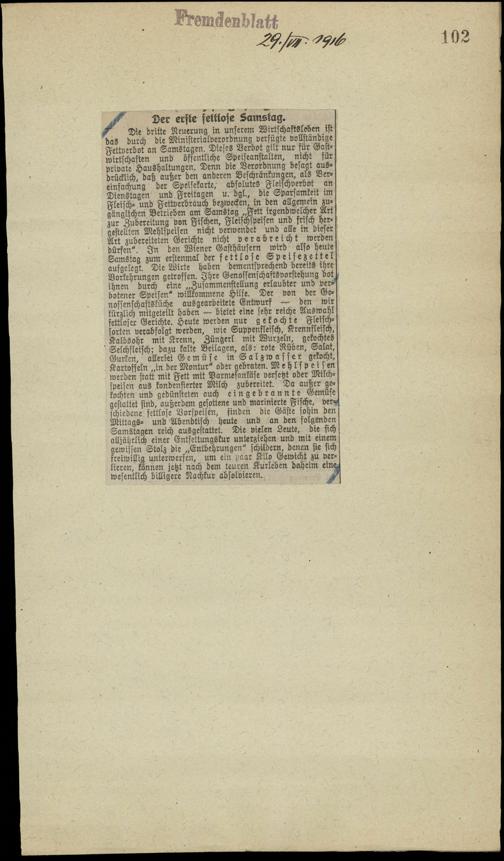 Fremdenblatt
29./VII. 1916
102
Der erste fettlose Samstag.
Die dritte Neuerung in unserem Wirtschaftsleben ist
das durch die Ministerialverordnung verfügte vollständige
Fettverbot an Samstagen. Dieses Verbot gilt nur für Gast-
wirtschaften und öffentliche Speiseanstalten, nicht für
private Haushaltungen. Denn die Verordnung besagt aus-
drücklich, daß außer den anderen Beschränkungen, als Ver-
einfachung der Speisekarte, absolutes Fleischverbot an
Dienstagen und Freitagen u. dgl., die Sparsamkeit im
Fleisch- und Fettverbrauch bezwecken, in den allgemein zu-
gänglichen Betrieben am Samstag „Fett irgendwelcher Art
zur Zubereitung von Fischen, Fleischspeisen und frisch her-
gestellten Mehlspeisen nicht verwendet und alle in dieser
Art zubereiteten Gerichte nicht verabreicht werden
dürfen“. In den Wiener Gasthäusern wird also heute
Samstag zum erstenmal der fettlose Speisezettel
aufgelegt. Die Wirte haben dementsprechend bereits ihre
Vorkehrungen getroffen. Ihre Genossenschaftsvorstehung bot
ihnen durch eine „Zusammenstellung erlaubter und ver-
botener Speisen“ willkommene Hilfe. Der von der Ge-
nossenschaftsküche ausgearbeitete Entwurf — den wir
kürzlich mitgeteilt haben — bietet eine sehr reiche Auswahl
fettloser Gerichte. Heute werden nur gekochte Fleisch-
sorten verabfolgt werden, wie Suppenfleisch, Krennfleisch,
Kalbsohr mit Krenn, Züngerl mit Wurzeln, gekochtes
Selchfleisch; dazu kalte Beilagen, als: rote Rüben, Salat,
Gurken, allerlei Gemüse in Salzwasser gekocht,
Kartoffeln „in der Montur“ oder gebraten. Mehlspeisen
werden statt mit Fett mit Parmesankäse versetzt oder Milch-
speisen aus kondensierter Milch zubereitet. Da außer ge-
kochten und gedünsteten auch eingebrannte Gemüse
gestattet sind, außerdem gesottene und marinierte Fische, ver-
schiedene fettlose Vorspeisen, finden die Gäste sohin den
Mittags- und Abendtisch heute und an den folgenden
Samstagen reich ausgestattet. Die vielen Leute, die sich
alljährlich einer Entfettungskur unterziehen und mit einem
gewissen Stolz die „Entbehrungen“ schildern, denen sie sich
freiwillig unterwerfen, um ein paar Kilo Gewicht zu ver-
lieren, können jetzt nach dem teuren Kurleben daheim eine
wesentlich billigere Nachkur absolvieren.